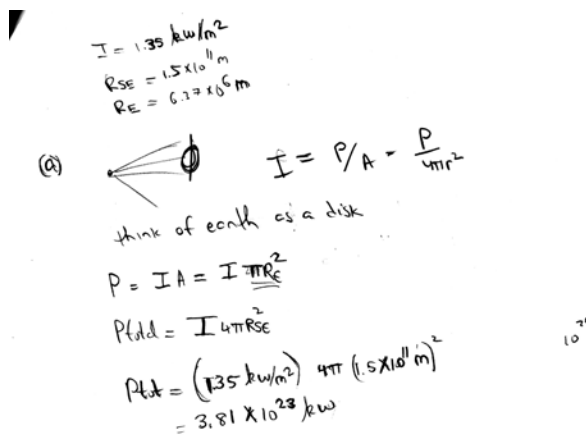 I = 1.35 kw/m²
RSE = 1.5×10¹¹ m
RE = 6.37×10⁶ m
(a)
I = P/A = P/4πr²
think of earth as a disk
P = IA = I πRE²
Ptotal = I 4πRSE²
Ptot = (1.35 kw/m²) 4π (1.5×10¹¹ m)²
= 3.81 × 10²³ kw